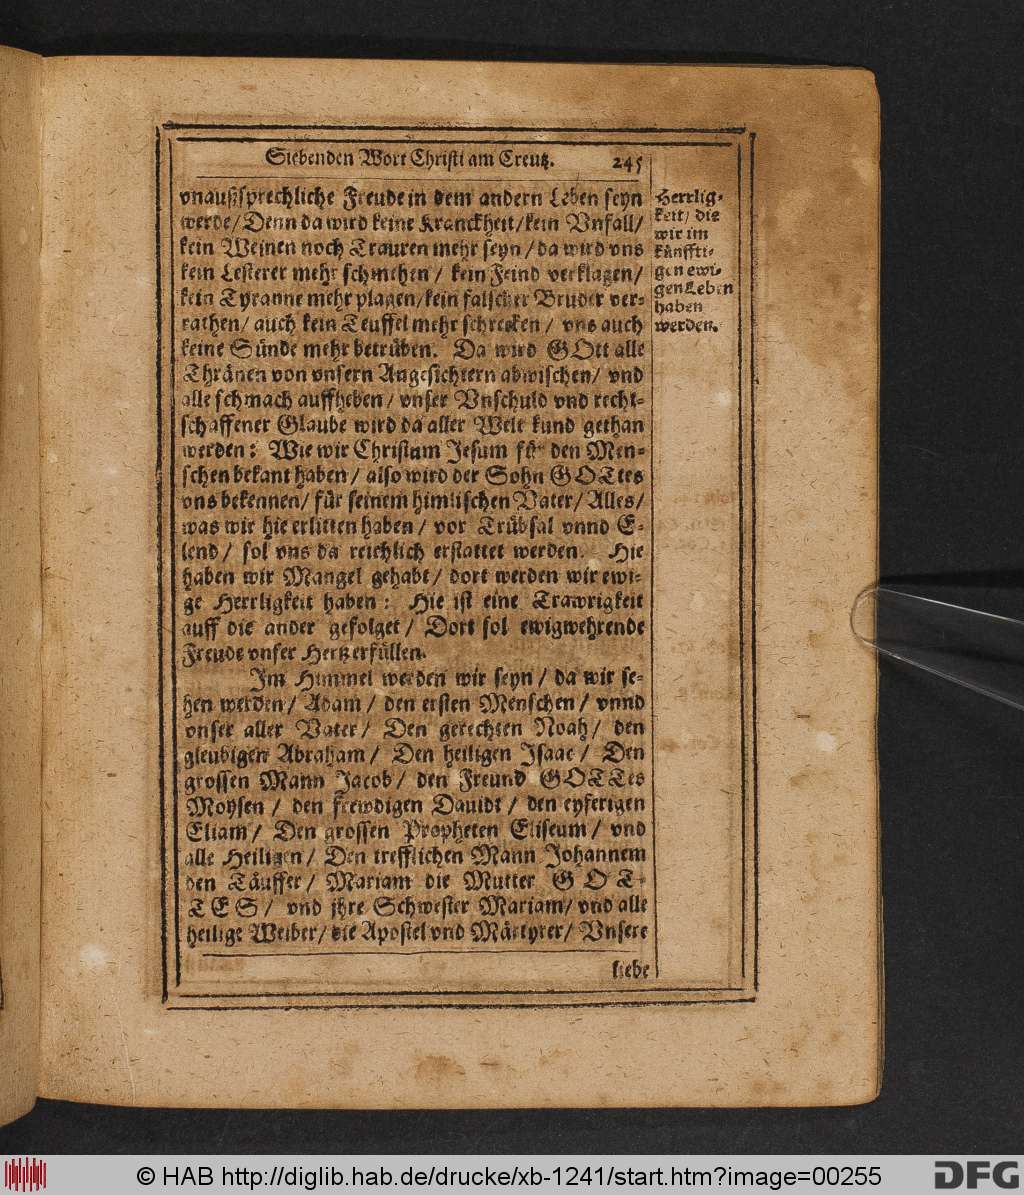 Siebenden Wort Christi am Creutz. 245
vnaußsprechliche Freude in dem andern Leben seyn
werde / Denn da wird keine Kranckheit / kein Vnfall /
kein Weinen noch Trauren mehr seyn / da wird vns
kein Lesterer mehr schmehen / kein Feind verklagen /
kein Tyranne mehr plagen / kein falscher Bruder ver-
rathen / auch kein Teuffel mehr schrecken / vns auch
keine Sünde mehr betrüben. Da wird GOtt alle
Thränen von vnsern Angesichtern abwischen / vnd
alle schmach auffheben / vnser Vnschuld vnd recht-
schaffener Glaube wird da aller Welt kund gethan
werden: Wie wir Christum Jesum für den Men-
schen bekant haben / also wird der Sohn GOttes
vns bekennen / für seinem himlischen Vater / Alles /
was wir hie erlitten haben / vor Trübsal vnnd E-
lend / sol vns da reichlich erstattet werden. Hie
haben wir Mangel gehabt / dort werden wir ewi-
ge Herrligkeit haben: Hie ist eine Trawrigkeit
auff die ander gefolget / Dort sol ewigwehrende
Freude vnser Hertz erfüllen.
Im Himmel werden wir seyn / da wir se-
hen werden / Adam / den ersten Menschen / vnnd
vnser aller Vater / Den gerechten Noah / den
gleubigen Abraham / Den heiligen Isaac / Den
grossen Mann Jacob / den Freund GOTTes
Moysen / den frewdigen Dauidt / den eyferigen
Eliam / Den grossen Propheten Eliseum / vnd
alle Heiligen / Den trefflichen Mann Johannem
den Täuffer / Mariam die Mutter GOT-
TES / vnd jhre Schwester Mariam / vnd alle
heilige Weiber / die Apostel vnd Märtyrer / Vnsere
liebe
Herrlig-
keit / die
wir im
künffti-
gen ewi-
gen Leben
haben
werden.
© HAB http://diglib.hab.de/drucke/xb-1241/start.htm?image=00255
DFG